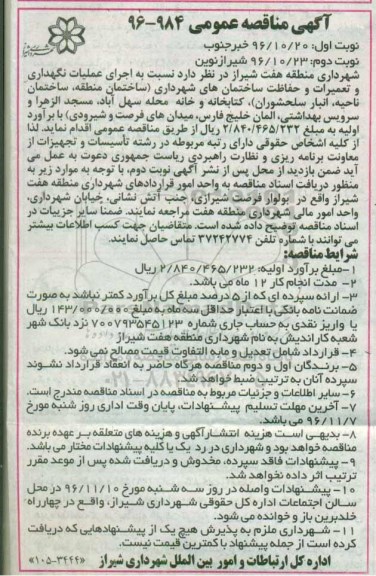 آگهی مناقصه عمومی ۹۸۴-۹۶
نوبت اول: ۹۶/۱۰/۲۰ خبرجنوب
نوبت دوم: ۹۶/۱۰/۲۳ شیرازنوین
شهرداری منطقه هفت شیراز در نظر دارد نسبت به اجرای عملیات نگهداری
و تعمیرات و حفاظت ساختمان های شهرداری (ساختمان منطقه، ساختمان
ناحیه، انبار سلحشوران)، کتابخانه و خانه محله سهل آباد، مسجد الزهرا و
سرویس بهداشتی، المان خلیج فارس، میدان های فرصت و شیرودی) با برآورد
اولیه به مبلغ ۲/۸۴۰/۴۶۵/۲۳۲ ریال از طریق مناقصه عمومی اقدام نماید. لذا
از کلیه اشخاص حقوقی دارای رتبه مربوطه در رشته تأسیسات و تجهیزات از
معاونت برنامه ریزی و نظارت راهبردی ریاست جمهوری دعوت به عمل می
آید ضمن بازدید از محل پس از نشر آگهی نوبت دوم، با توجه به موارد زیر به
منظور دریافت اسناد مناقصه به واحد امور قراردادهای شهرداری منطقه هفت
شیراز واقع در بولوار فرصت شیرازی، جنب آتش نشانی، خیابان شهرداری،
واحد امور مالی شهرداری منطقه هفت مراجعه نمایند. ضمنا سایر جزییات در
اسناد مناقصه توضیح داده شده است. متقاضیان جهت کسب اطلاعات بیشتر
می توانند با شماره تلفن ۳۷۲۴۲۷۷۴ تماس حاصل نمایند.
شرایط مناقصه:
۱-مبلغ برآورد اولیه: ۲/۸۴۰/۴۶۵/۲۳۲ ریال
۲- مدت انجام کار ۱۲ ماه می باشد.
۳- ارائه سپرده ای که از ۵ درصد مبلغ کل برآورد کمتر نباشد به صورت
ضمانت نامه بانکی با اعتبار حداقل سه ماه به مبلغ ۱۴۳/۰۰۰/۰۰۰ ریال
یا واریز نقدی به حساب جاری شماره ۷۰۰۷۹۳۵۴۵۱۲۳ نزد بانک شهر
شعبه کاراندیش به نام شهرداری منطقه هفت شیراز
۴- قرارداد شامل تعدیل و مابه التفاوت قیمت مصالح نمی شود.
۵- برندگان اول و دوم مناقصه هرگاه حاضر به انعقاد قرارداد نشوند
سپرده آنان به ترتیب ضبط خواهد شد.
۶- سایر اطلاعات و جزئیات مربوط به مناقصه در اسناد مناقصه مندرج است.
۷- آخرین مهلت تسلیم پیشنهادات، پایان وقت اداری روز شنبه مورخ
۹۶/۱۱/۷ می باشد.
۸- بدیهی است هزینه انتشار آگهی و هزینه های متعلقه بر عهده برنده
مناقصه خواهد بود و شهرداری در رد یک یا کلیه پیشنهادات مختار می باشد.
۹- پیشنهادات فاقد سپرده، مخدوش و دریافت شده پس از موعد مقرر
ترتیب اثر داده نخواهد شد.
۱۰- پیشنهادات واصله در روز سه شنبه مورخ ۹۶/۱۱/۱۰ در محل
سالن اجتماعات اداره کل حقوقی شهرداری شیراز، واقع در چهارراه
خلدبرین باز و خوانده می شود.
۱۱- شهرداری ملزم به پذیرش هیچ یک از پیشنهادهایی که دریافت
کرده است از جمله پیشنهاد با کمترین قیمت نیست.
اداره کل ارتباطات و امور بین الملل شهرداری شیراز «۳۴۴۴-۱۰۵»